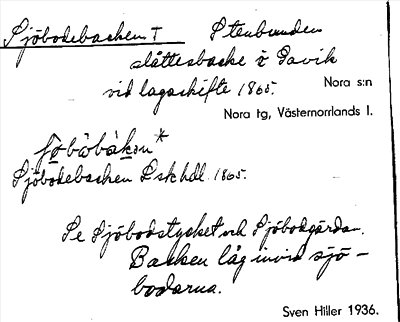 Sjöbodebacken T Stenbunden
slåttesbacke i Gavik
vid lagaskifte 1865.
Nora s:n
Nora tg, Västernorrlands l.
Sjöbodebacken Lsk hdl. 1865.
Se Sjöbodstycket och Sjöbodgärdan.
Backen låg invid sjö-
bodarna.
Sven Hiller 1936.